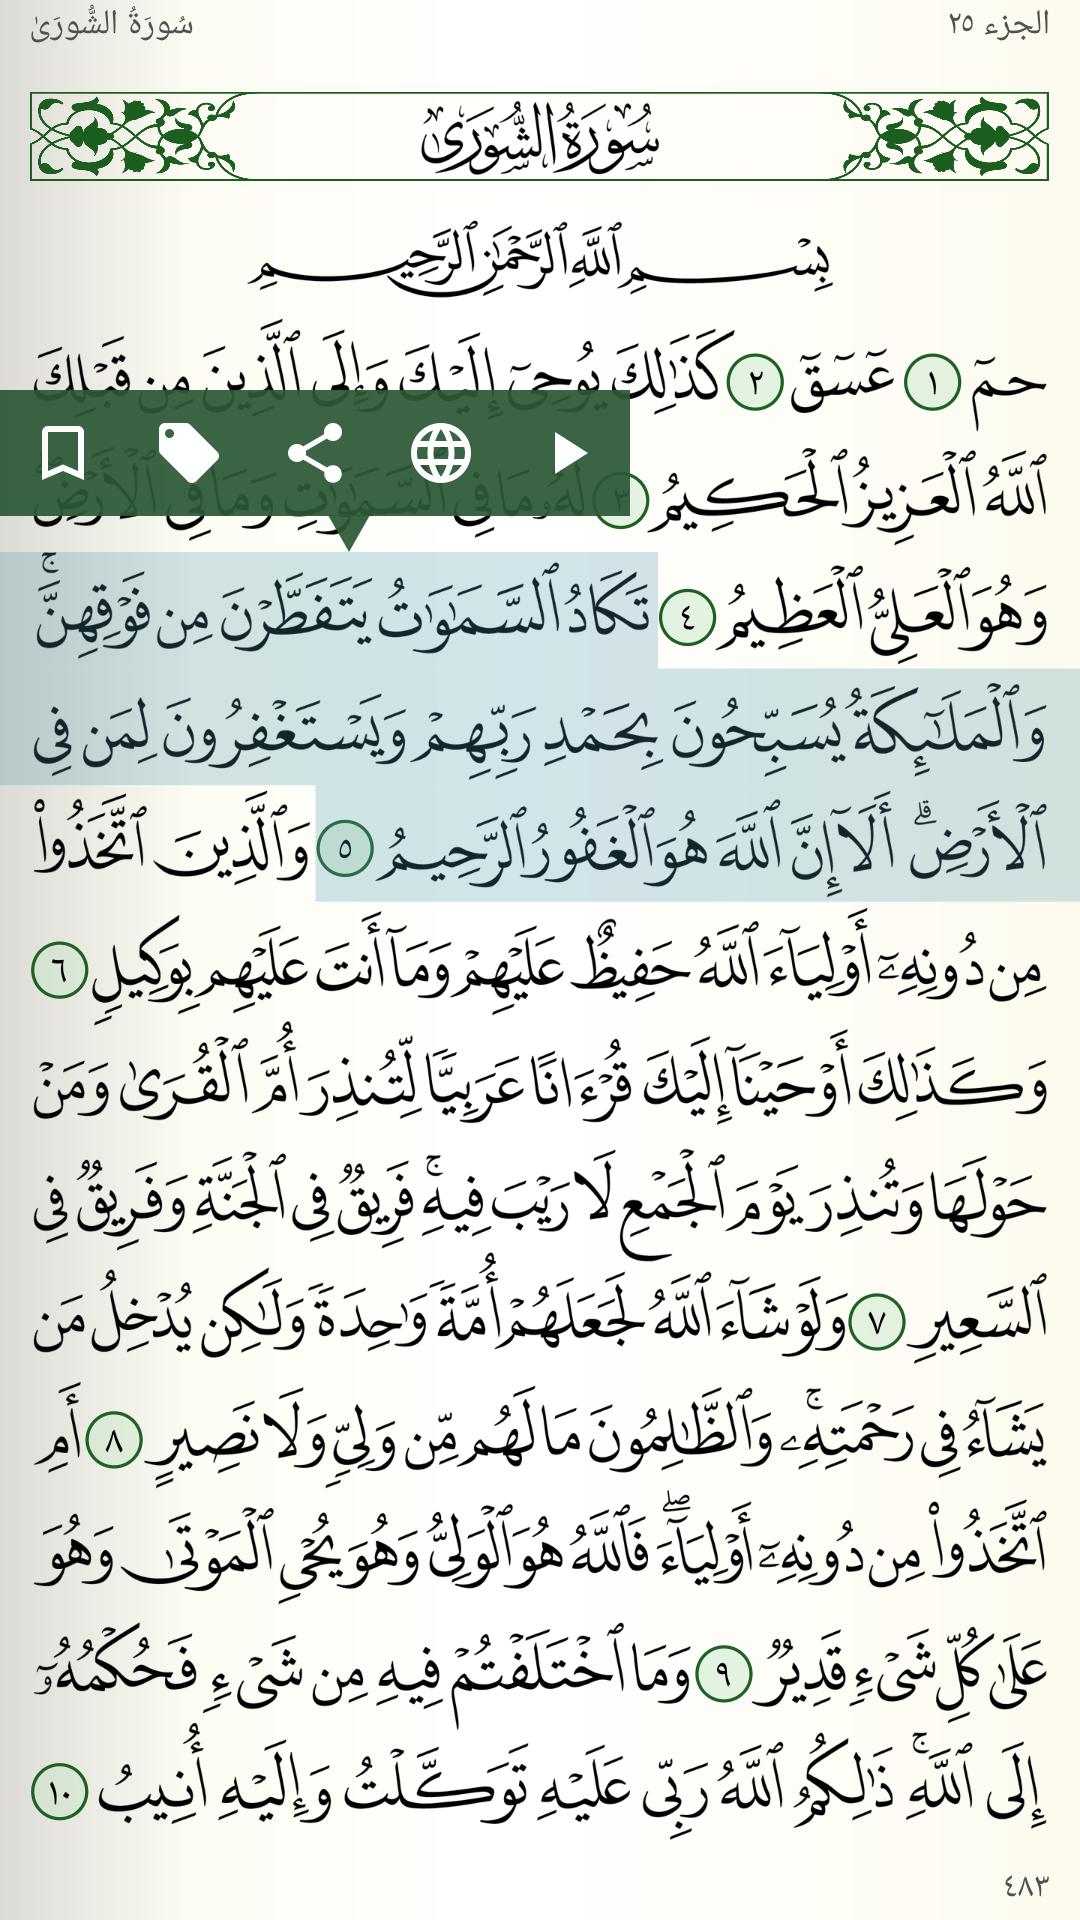 الجزء ٢٥ سُورَةُ الشُّورَىٰ
سُورَةُ الشُّورَىٰ
بِسْمِ ٱللَّهِ ٱلرَّحْمَٰنِ ٱلرَّحِيمِ
حمٓ ١ عٓسٓقٓ ٢ كَذَٰلِكَ يُوحِىٓ إِلَيْكَ وَإِلَى ٱلَّذِينَ مِن قَبْلِكَ
ٱللَّهُ ٱلْعَزِيزُ ٱلْحَكِيمُ ٣ لَهُۥ مَا فِى ٱلسَّمَٰوَٰتِ وَمَا فِى ٱلْأَرْضِ
وَهُوَ ٱلْعَلِىُّ ٱلْعَظِيمُ ٤ تَكَادُ ٱلسَّمَٰوَٰتُ يَتَفَطَّرْنَ مِن فَوْقِهِنَّۚ
وَٱلْمَلَٰٓئِكَةُ يُسَبِّحُونَ بِحَمْدِ رَبِّهِمْ وَيَسْتَغْفِرُونَ لِمَن فِى
ٱلْأَرْضِۗ أَلَآ إِنَّ ٱللَّهَ هُوَ ٱلْغَفُورُ ٱلرَّحِيمُ ٥ وَٱلَّذِينَ ٱتَّخَذُوا۟
مِن دُونِهِۦٓ أَوْلِيَآءَ ٱللَّهُ حَفِيظٌ عَلَيْهِمْ وَمَآ أَنتَ عَلَيْهِم بِوَكِيلٍ ٦
وَكَذَٰلِكَ أَوْحَيْنَآ إِلَيْكَ قُرْءَانًا عَرَبِيًّا لِّتُنذِرَ أُمَّ ٱلْقُرَىٰ وَمَنْ
حَوْلَهَا وَتُنذِرَ يَوْمَ ٱلْجَمْعِ لَا رَيْبَ فِيهِۚ فَرِيقٌ فِى ٱلْجَنَّةِ وَفَرِيقٌ فِى
ٱلسَّعِيرِ ٧ وَلَوْ شَآءَ ٱللَّهُ لَجَعَلَهُمْ أُمَّةً وَٰحِدَةً وَلَٰكِن يُدْخِلُ مَن
يَشَآءُ فِى رَحْمَتِهِۦۚ وَٱلظَّٰلِمُونَ مَا لَهُم مِّن وَلِىٍّ وَلَا نَصِيرٍ ٨ أَمِ
ٱتَّخَذُوا۟ مِن دُونِهِۦٓ أَوْلِيَآءَۖ فَٱللَّهُ هُوَ ٱلْوَلِىُّ وَهُوَ يُحْىِ ٱلْمَوْتَىٰ وَهُوَ
عَلَىٰ كُلِّ شَىْءٍ قَدِيرٌ ٩ وَمَا ٱخْتَلَفْتُمْ فِيهِ مِن شَىْءٍ فَحُكْمُهُۥٓ
إِلَى ٱللَّهِۚ ذَٰلِكُمُ ٱللَّهُ رَبِّى عَلَيْهِ تَوَكَّلْتُ وَإِلَيْهِ أُنِيبُ ١٠
٤٨٣